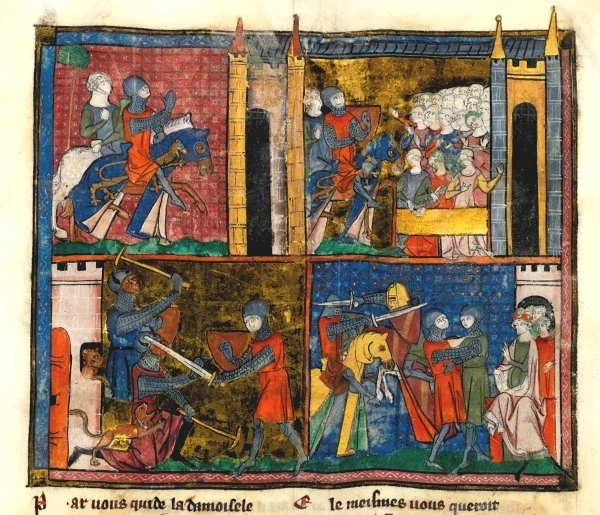 Par vous quide la damoisele
E le meismes vous queroit